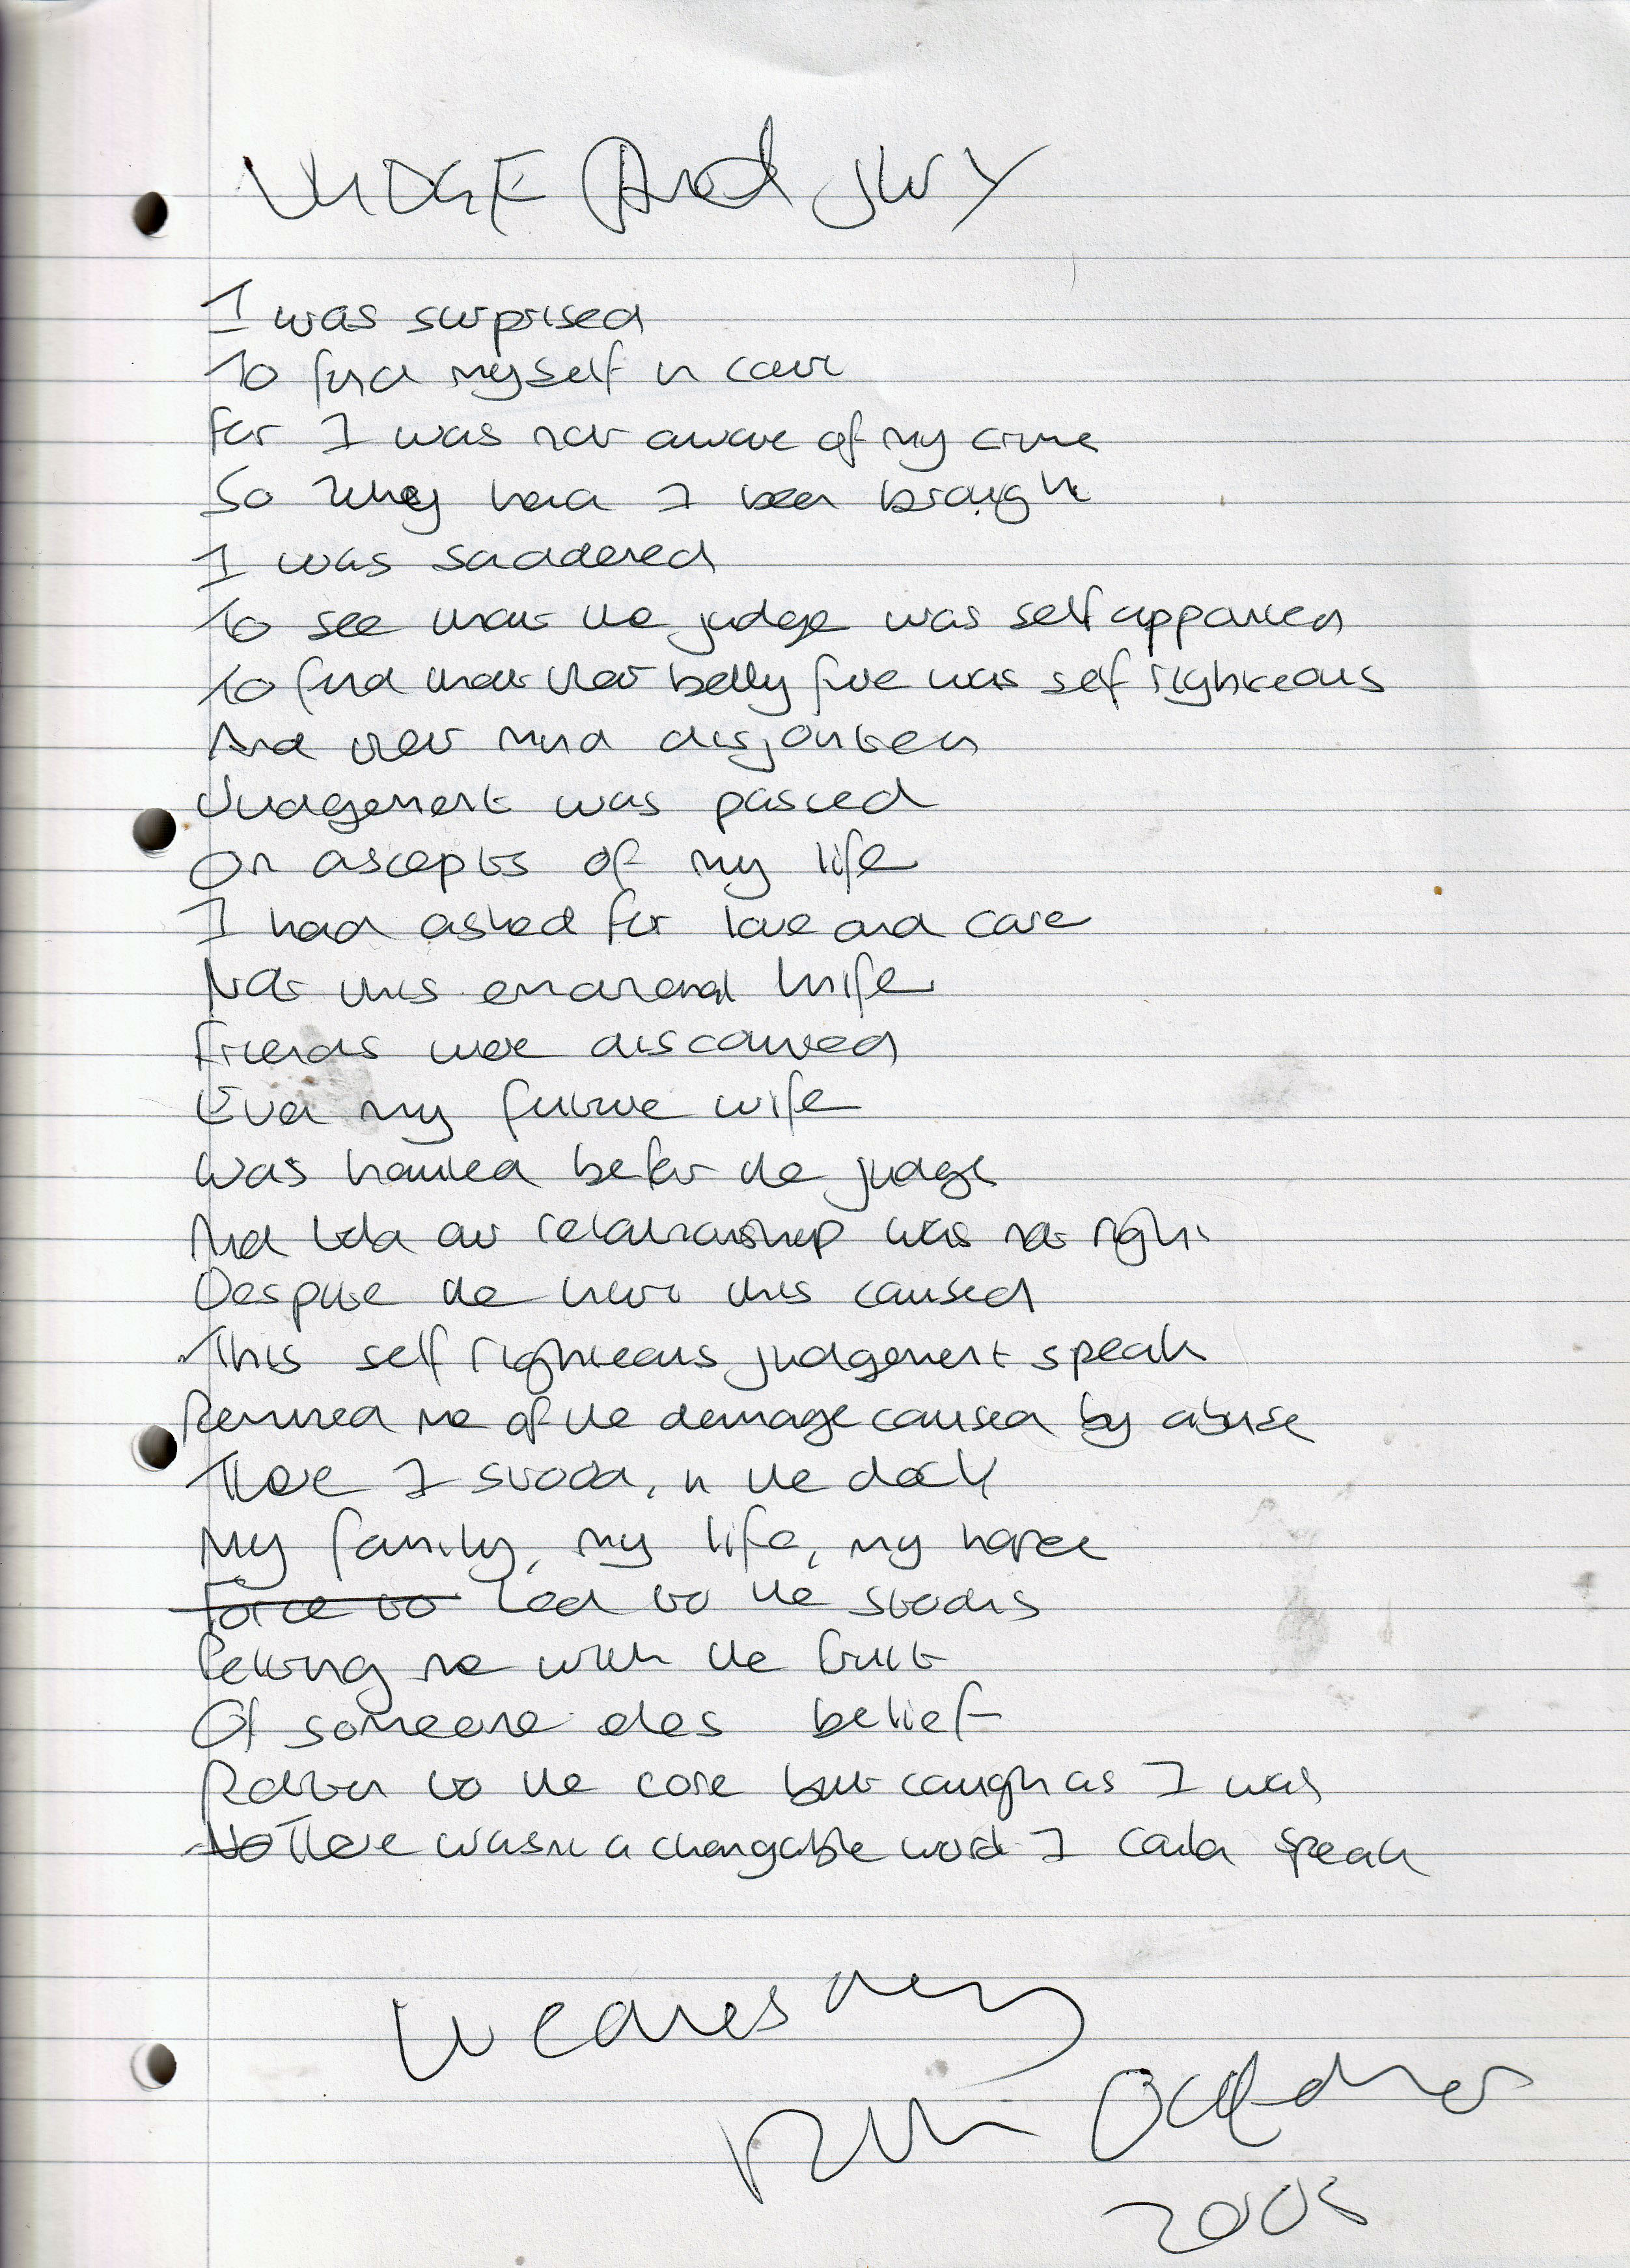 JUDGE And JURY
I was surprised
To find myself in court
For I was not aware of my crime
So why had I been brought
I was saddened
To see that the judge was self appointed
To find that their belly fire was self righteous
And their mind disjointed
Judgement was passed
On ascepts of my life
I had asked for love and care
Not this emotional knife
Friends were discounted
Even my future wife
Was hauled befor the judge
And told our relationship was not right
Despite the hurt this caused
This self righteous judgement speak
Remined me of the demage caused by abuse
There I stood, in the dock
My family, my life, my
Force to Led to the stocks
Pelting me with the fruit
Of someone eles belief
Rotten to the core but caught as I was
No There wasnt a changable word I could speak
Wednesday
October